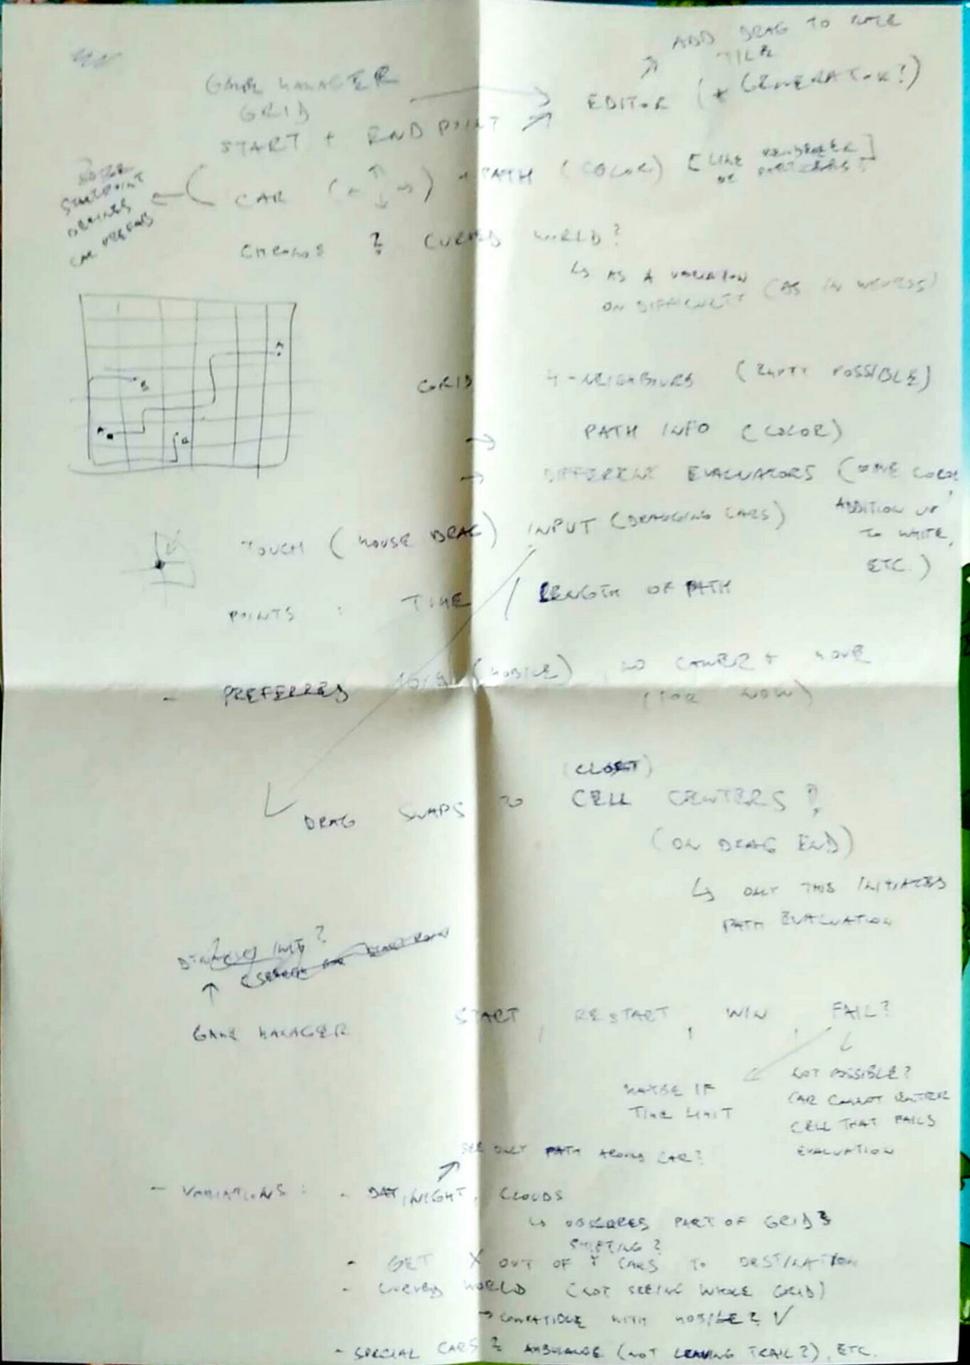 ADD DRAG TO
TILE
GAME MANAGER
GRID
EDITOR (+ GENERATOR?)
START + END POINT
STARTPOINT
DEFINES
CAR
CAR (← ↑ ↓ →) + PATH (COLOR) [LINE RENDERER
OR PARTICLES]
? CURVED WORLD?
↳ AS A VARIATION
ON DIFFICULTY (AS IN
A
B
A
B
GRID 4-NEIGHBOURS (EMPTY POSSIBLE)
→ PATH INFO (COLOR)
→ DIFFERENT EVALUATORS (ONE COLOR,
ADDITION UP
TO WHITE,
ETC.)
TOUCH (MOUSE DRAG) INPUT (DRAGGING CARS)
POINTS : TIME / LENGTH OF PATH
- PREFERRED 16:9 (MOBILE), NO CAMERA MOVE
(FOR NOW)
(CLOSEST)
DRAG SNAPS TO CELL CENTERS?
(ON DRAG END)
↳ ONLY THIS INITIATES
PATH EVALUATION
INFO?
GAME MANAGER
START, RESTART, WIN, FAIL?
MAYBE IF
TIME LIMIT
NOT POSSIBLE?
CAR CANNOT ENTER
CELL THAT FAILS
EVALUATION
SEE ONLY PATH AROUND CAR?
- VARIATIONS: - DAY/NIGHT, CLOUDS
↳ OBSCURES PART OF GRID?
SHIFTING?
- GET X OUT OF Y CARS TO DESTINATION
- CURVED WORLD (NOT SEEING WHOLE GRID)
→ COMPATIBLE WITH MOBILE? ✓
- SPECIAL CARS? AMBULANCE (NOT LEAVING TRAIL?), ETC.